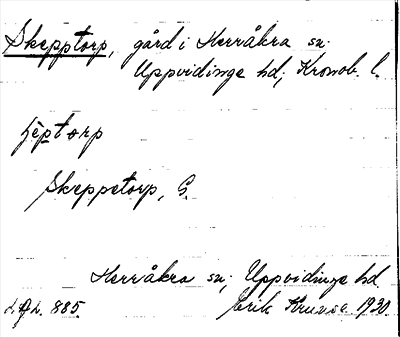 Skepptorp, gård i Herråkra sn.
Uppvidinge hd, Kronob. l.
ʃèptorp
Skeppetorp, G.
Herråkra sn; Uppvidinge hd.
885. Erik 1930.